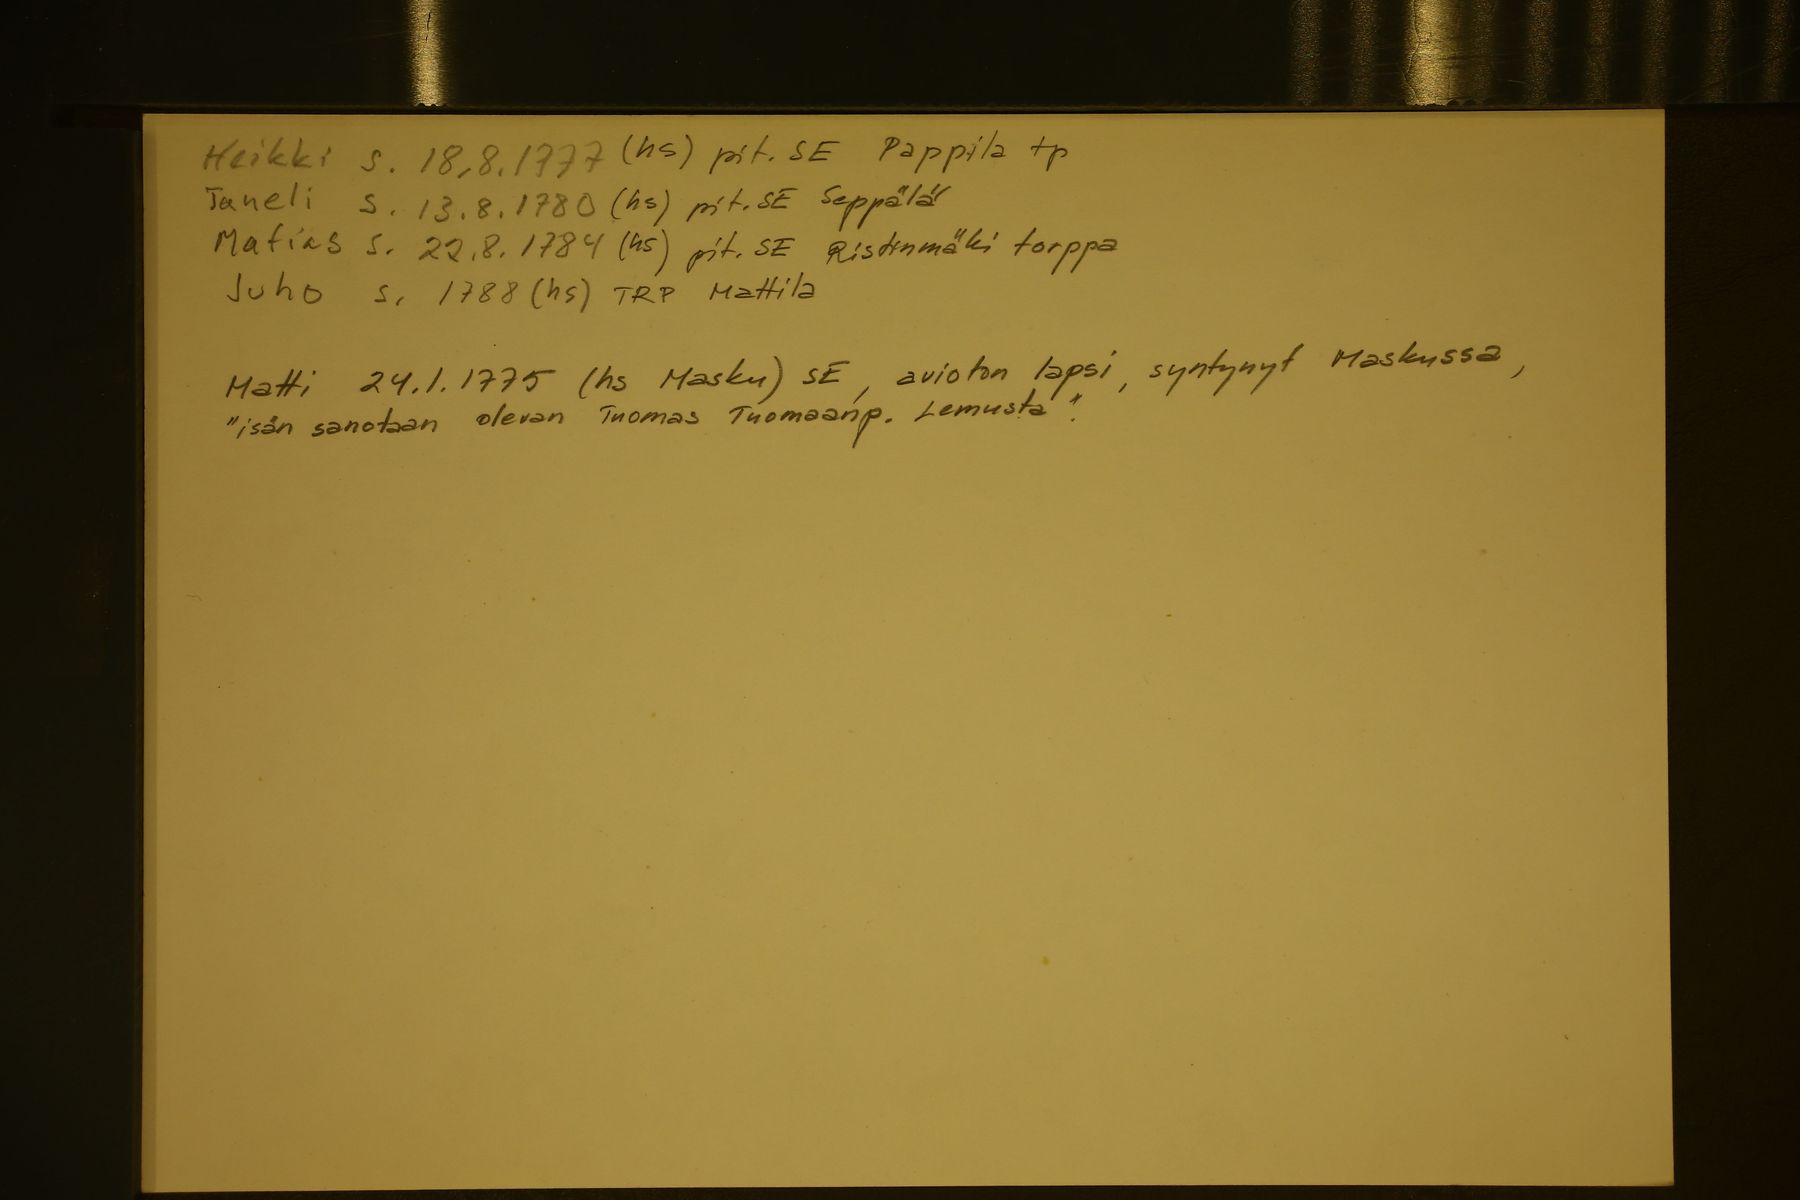 Heikki s. 18.8.1777 (hs) pit. SE Pappila tp
Taneli s. 13.8.1780 (hs) pit. SE Seppälä
Matias s. 22.8.1784 (hs) pit. SE Ristinmäki torppa
Juho s. 1788 (hs) TRP Mattila
Matti 24.1.1775 (hs Masku) SE, avioton lapsi, syntynyt Maskussa,
"isän sanotaan olevan Tuomas Tuomaanp. Lemusta".